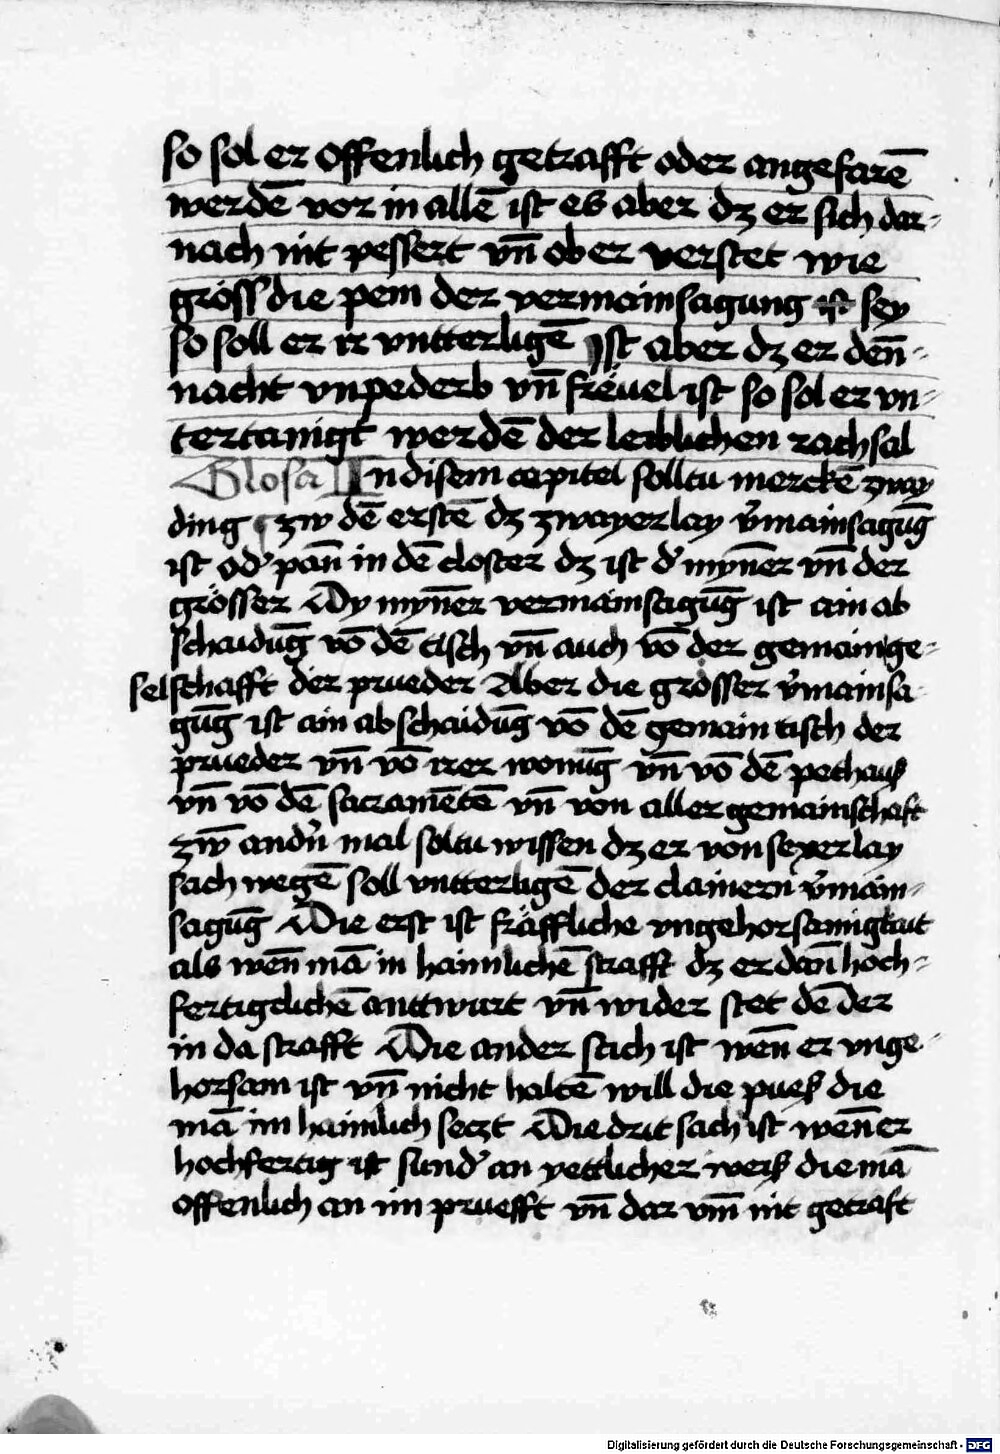 so sol er offenlich getrafft oder angefarē
werdē vor in allē ist es aber dz er sich dar-
nach nit pessert vn̄ ob er verstet wie
gröss die pem der vermainsagung ist sey
so soll er ir vntterligē Ist aber dz er den̄-
nacht vnpederb vn̄ frëuel ist so sol er vn-
tertanigt werdē der leiblichen rachsal
Glosa In disem capitel solltu merckē zway
ding zw dē erstē dz zwayerlay v̄mainsagūg
ist od' pan̄ in dē closter dz ist d' myn̄er vn̄ der
grösser Dy myn̄er vermainsagūg ist ain ab
schaidūg vō dē tisch vn̄ auch vō der gemainge-
selschafft der prueder Aber die grösser v̄mainsa
gūg ist ain abschaidūg vō dē gemain tisch der
prueder vn̄ vō irer wonūg vn̄ vō dē pethaus
vn̄ vō dē sacramētē vn̄ von aller gemainschaft
zw̄ andn̄ mal soltu wissen dz er von sexerlay
sach wegē soll vntterligē der clainern v̄main-
sagūg Die erst ist fräffliche vngehorsamigkait
als wen̄ mā in haimlichē strafft dz er dan̄ hoch-
fertigclichē anttwurt vn̄ wider stet dē der
in da strafft Die ander sach ist wen̄ er vnge-
horsam ist vn̄ nicht haltē will die pues die
mā im haimlich seczt Die drit sach ist wen̄ er
hochfertig ist sund' an yettlicher weis die mā
offenlich an im pruefft vn̄ dar vm̄ nit getraft
Digitalisierung gefördert durch die Deutsche Forschungsgemeinschaft - DFG